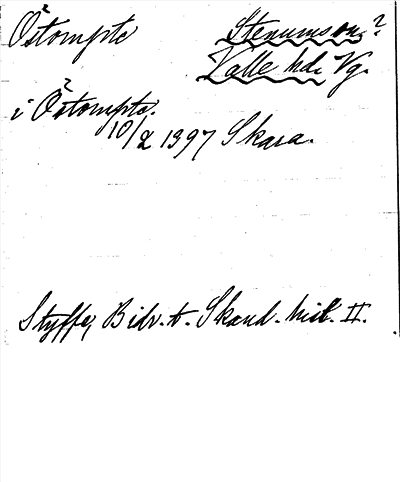 Östompte Stenums sn.?
Valle hd. Vg.
i Östompte.
10/2 1397 Skara.
Styffe, Bidr. t. Skand. hist. II.